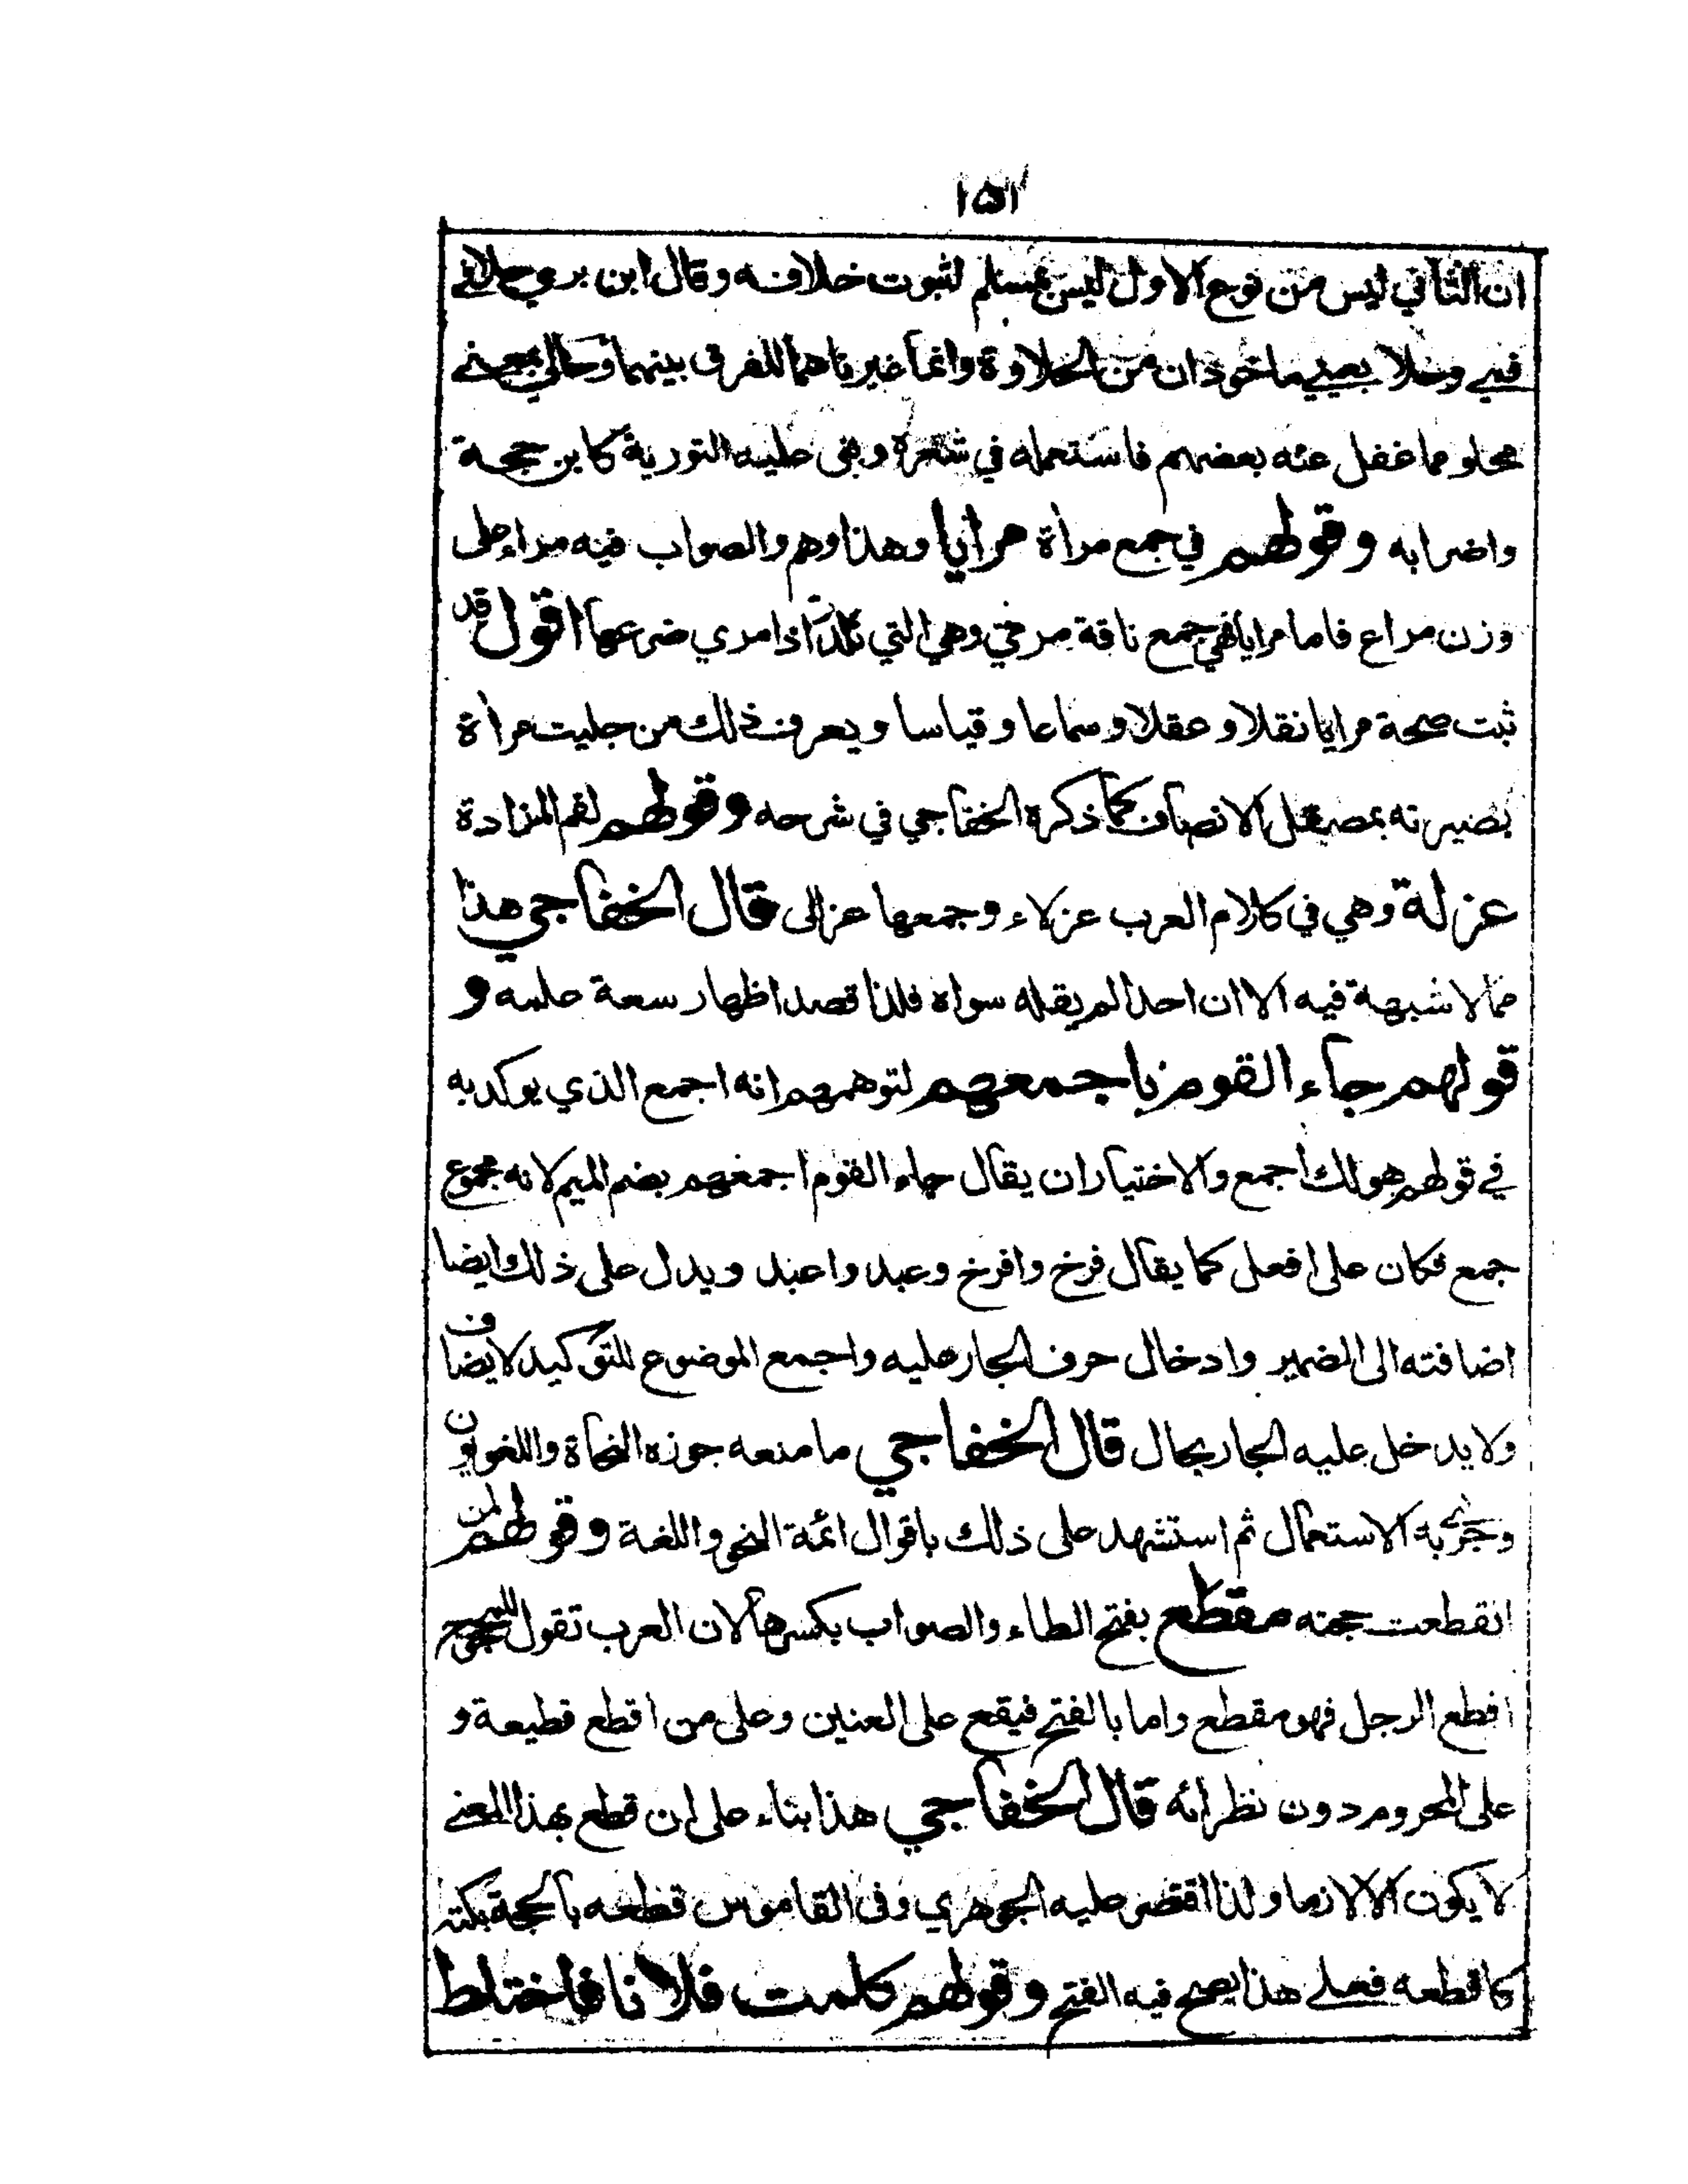 ١٥١
ان الثاني ليس من نوع الاول ليس بمسلم لثبوت خلافه وقال ابن بري حلا في
فمي وحلا بعيني ماخوذان من الحلاوة وانما غير بناهما للفرق بينهما وحالي بمعنے
محلو مما غفل عنه بعضهم فاستعمله في شعره وبنى عليه التورية كابن حجة
واضرابه وقولهم في جمع مرأة مرايا وهذا وهم والصواب فيه مراء على
وزن مراع فاما مرايا فهي جمع ناقة مري وهي التي تدر اذا مري ضرعها اقول قد
ثبت صحة مرايا نقلا وعقلا وسماعا وقياسا ويعرف ذلك من جليت مرأة
بصيرته بمصقل الانصاف كما ذكره الخفاجي في شرحه وقولهم لفم المزادة
عزلة وهي في كلام العرب عزلاء وجمعها عزالى قال الخفاجي هذا
مما لا شبهة فيه الا ان احدا لم يقله سواه فلذا قصد اظهار سعة علمه و
قولهم جاء القوم باجمعهم لتوهمهم انه اجمع الذي يوكد به
في قولهم هو لك اجمع والاختيار ان يقال جاء القوم اجمعهم بضم الميم لانه مجموع
جمع فكان على افعل كما يقال فرخ وافرخ وعبد واعبد ويدل على ذلك ايضا
اضافته الى الضمير وادخال حرف الجار عليه واجمع الموضوع للتوكيد لا يضاف
ولا يدخل عليه الجار بحال قال الخفاجي ما منعه جوزه النحاة واللغويون
وجرى به الاستعمال ثم استشهد على ذلك باقوال ائمة النحو واللغة وقولهم لمن
انقطعت حجته مقطع بفتح الطاء والصواب بكسرها لان العرب تقول للمحجوج
اقطع الرجل فهو مقطع واما بالفتح فيقع على العنين وعلى من اقطع قطيعة و
على المحروم دون نظرائه قال الخفاجي هذا بناء على ان قطع بهذا المعنے
لا يكون الا لازما ولذا اقتصر عليه الجوهري وفي القاموس قطعه بالحجة بكته
كاقطعه فعلے هذا يصح فيه الفتح وقولهم كلمت فلانا فاختلط